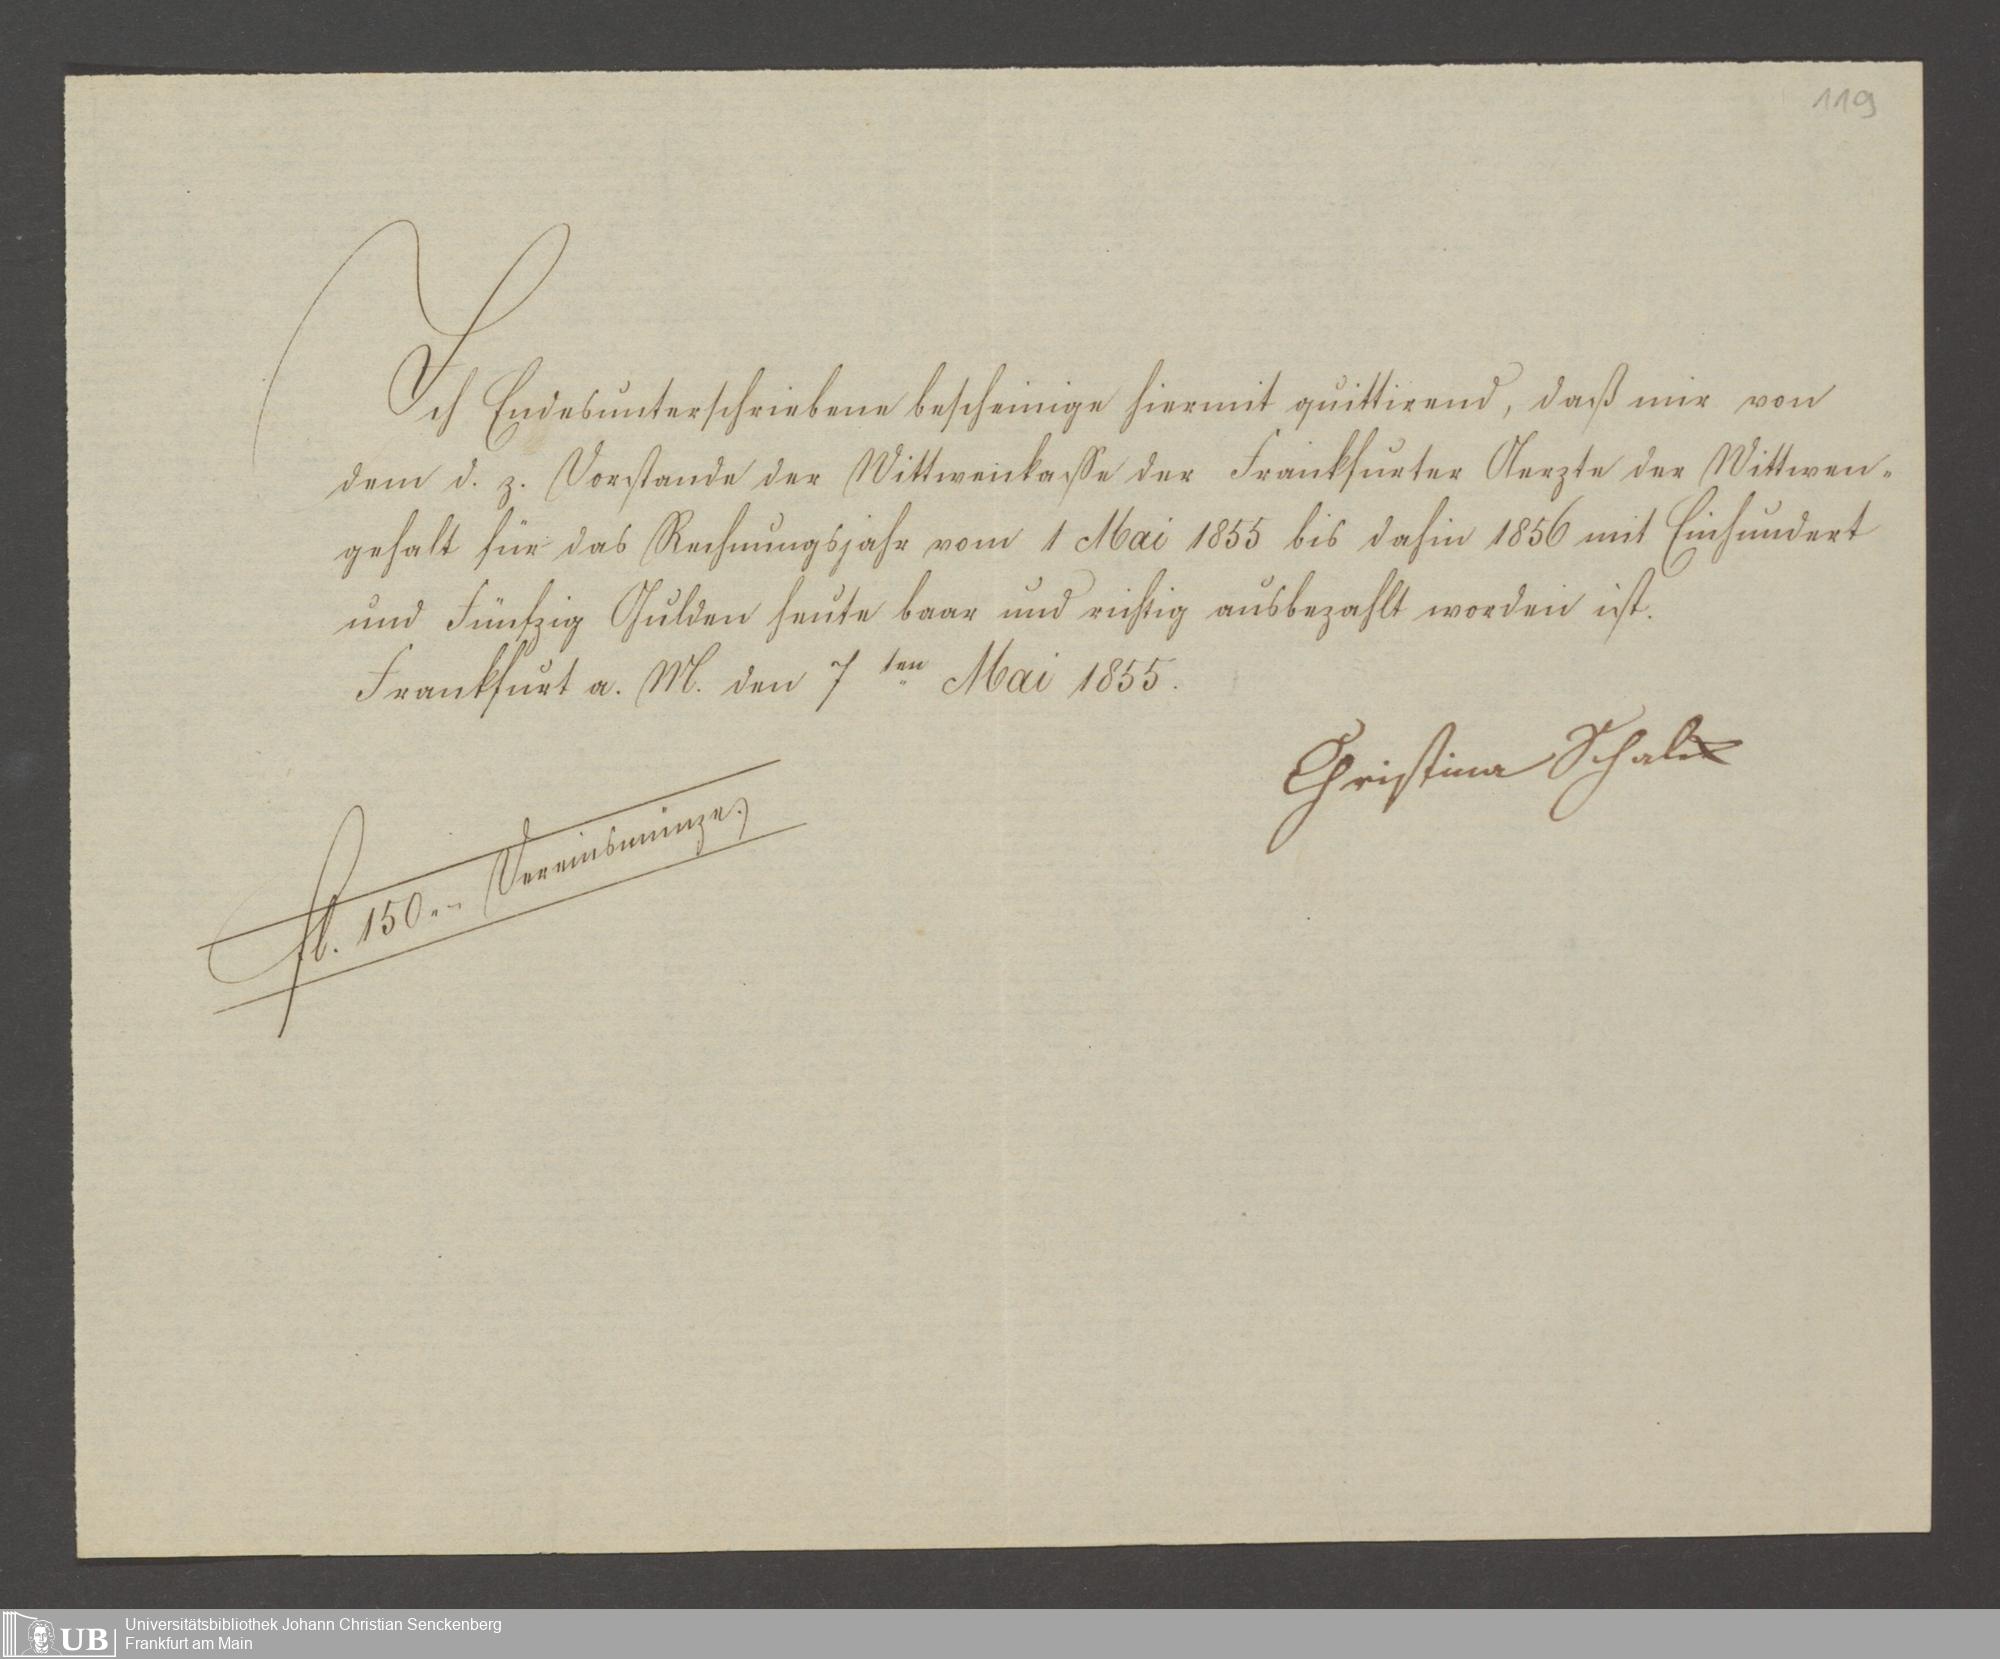 119
Ich Endesunterschriebene bescheinige hiermit quittirend, daß mir von
dem d. z. Vorstande der Wittwenkasse der Frankfurter Aerzte der Wittwen-
gehalt für das Rechnungsjahr vom 1 Mai 1855 bis dahin 1856 mit Einhundert
und Fünfzig Gulden heute baar und richtig ausbezahlt worden ist.
Frankfurt a. M. den 7ten Mai 1855.
Christina
fl. 150 „ – Vereinsmünze.
UB
Universitätsbibliothek Johann Christian Senckenberg
Frankfurt am Main